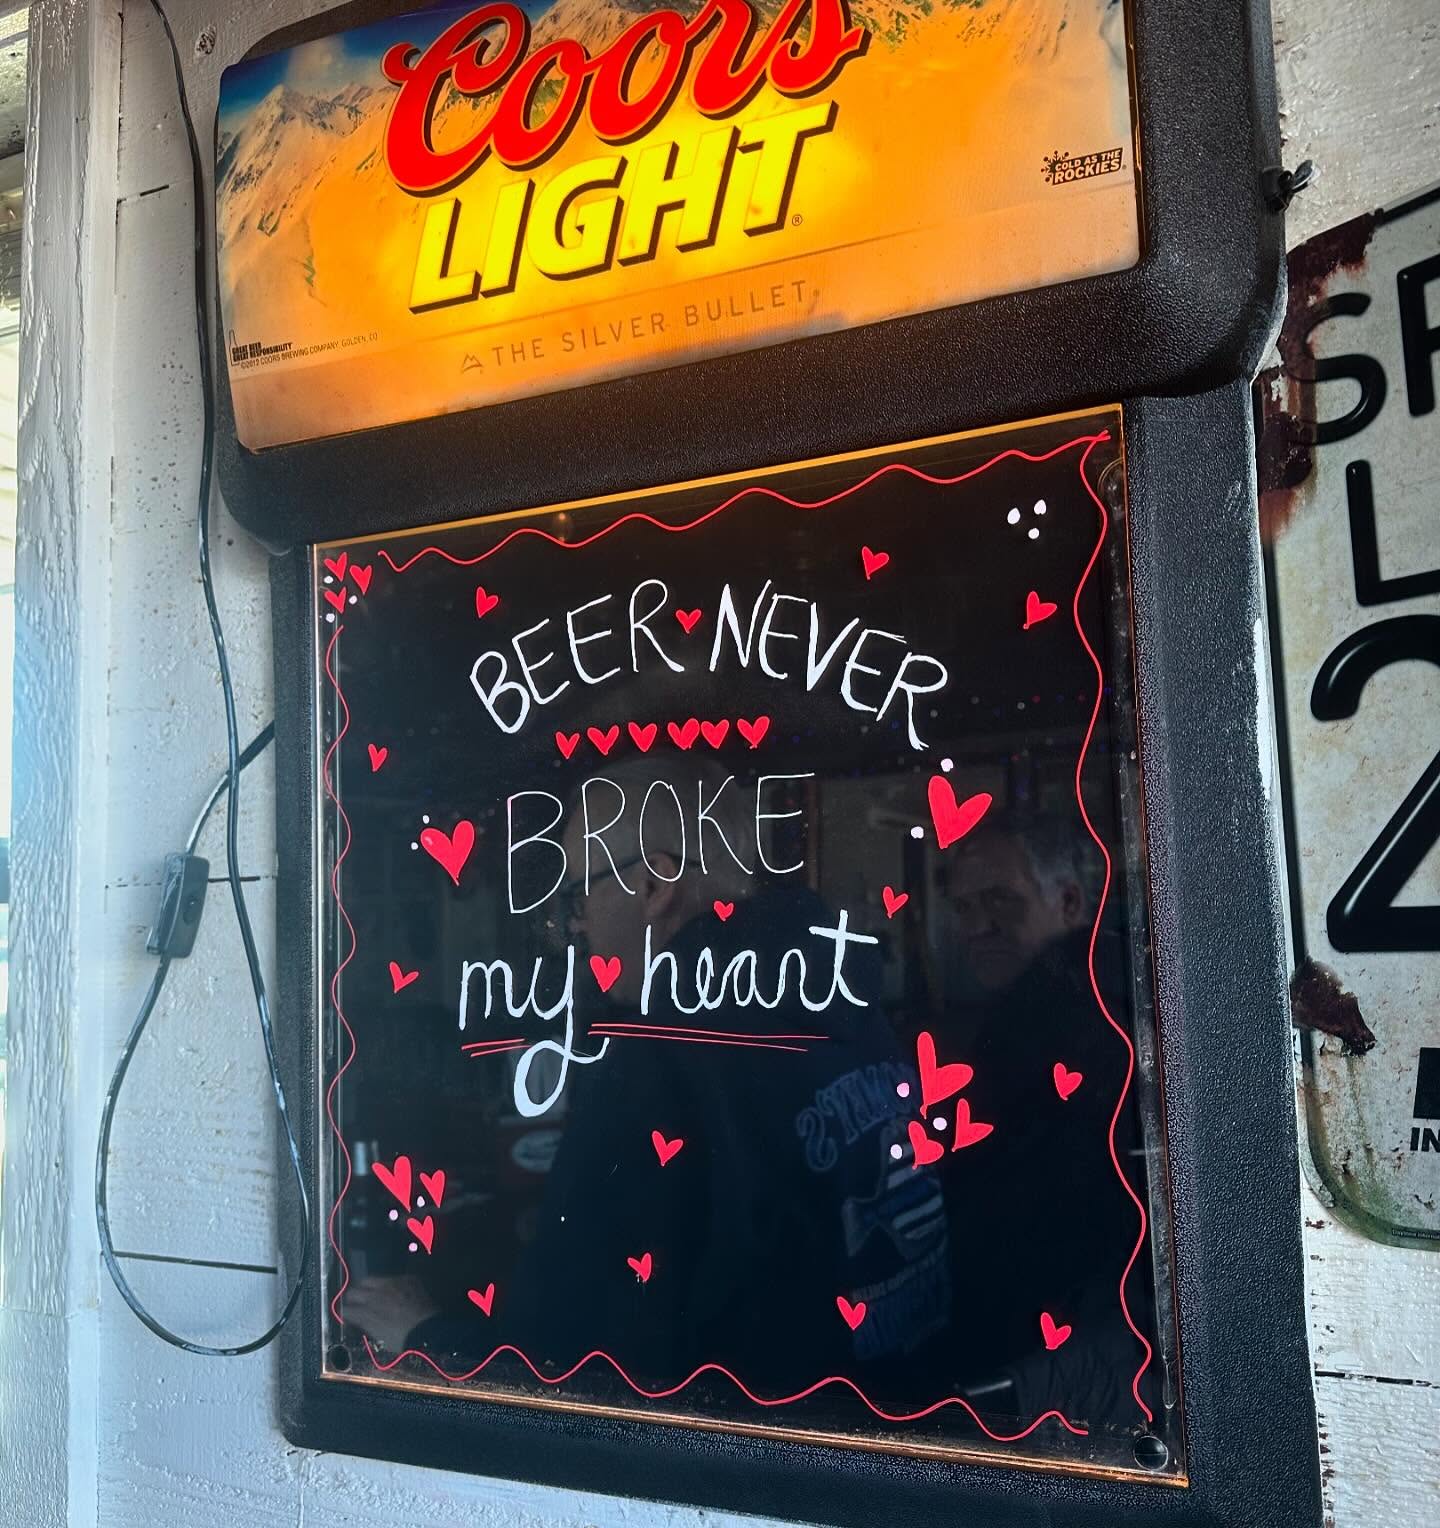 Coors
LIGHT®
COLD AS THE
ROCKIES®
THE SILVER BULLET®
GREAT BEER
GREAT RESPONSIBILITY®
©2012 COORS BREWING COMPANY, GOLDEN, CO
BEER NEVER
BROKE
my heart
SP
L
2
IN